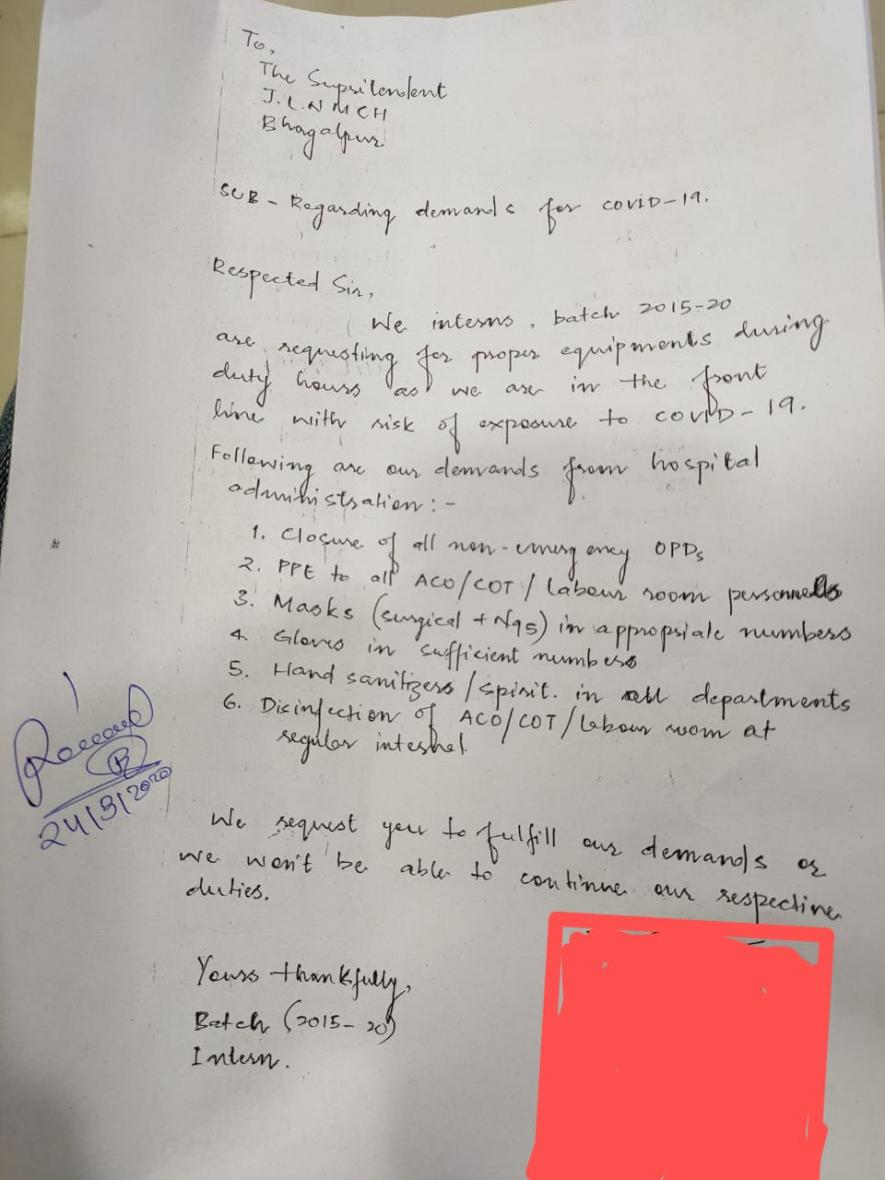 To,
The Supritendent
J.L.N MCH
Bhagalpur
SUB - Regarding demands for COVID-19.
Respected Sir,
We interns, batch 2015-20
are requesting for proper equipments during
duty hours as we are in the front
line with risk of exposure to COVID-19.
Following are our demands from hospital
administration :-
1. Closure of all non-emergency OPDs
2. PPE to all ACO/COT/Labour room personnels
3. Masks (surgical + N95) in appropriate numbers
4. Gloves in sufficient numbers
5. Hand sanitizers/spirit. in all departments
6. Disinfection of ACO/COT/Labour room at
regular inteshel.
24/3/2020
We request you to fulfill our demands or
we won't be able to continue our respective
duties.
Yours thankfully,
Batch (2015-20)
Intern.